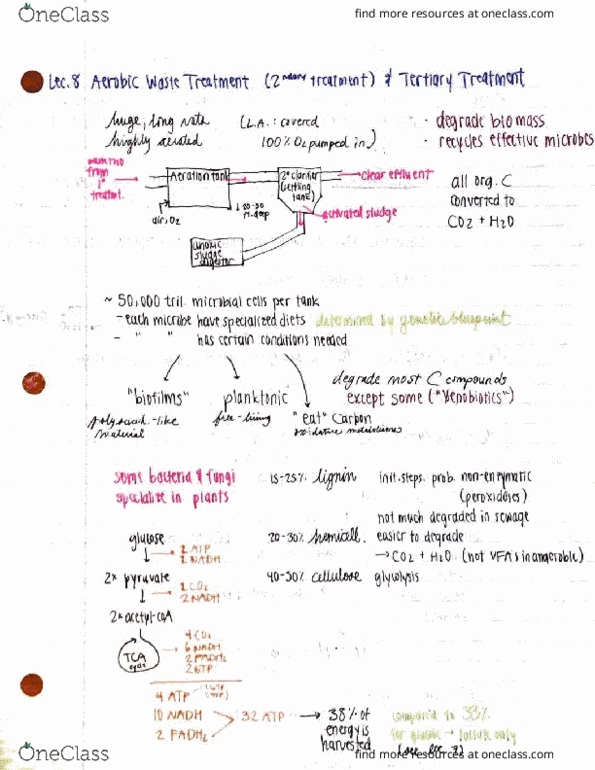 OneClass
find more resources at oneclass.com
Lec. 8 Aerobic Waste Treatment (2ndary treatment) & Tertiary Treatment
huge, long
highly aerated
(L.A.: covered
100% O2 pumped in)
· degrade biomass
· recycles effective microbes
from
1°
treatmt.
Aeration tank
air, O2
20-30
ft. deep
2° clarifier
(settling
tank)
clear effluent
activated sludge
anoxic
sludge
digester
all org. C
converted to
CO2 + H2O
~ 50,000 tril. microbial cells per tank
- each microbe have specialized diets determined by genetic blueprint
- " " has certain conditions needed
"biofilms"
polysacch-like
material
planktonic
free-living
"eat" carbon
oxidative metabolisms
degrade most C compounds
except some ("Xenobiotics")
some bacteria & fungi
specialize in plants
15-25% lignin
init. steps. prob. non-enzymatic
(peroxidases)
not much degraded in sewage
20-30% hemicell.
easier to degrade
→ CO2 + H2O (not VFA's in anaerobic)
40-50% cellulose
glycolysis
glucose
2 ATP
2 NADH
2x pyruvate
2 CO2
2 NADH
2x acetyl-CoA
TCA
cycle
4 CO2
6 NADH
2 FADH2
2 GTP
4 ATP
10 NADH
2 FADH2
32 ATP → 38% of
energy is
harvested
compared to 33%
for glucose → lactate only
OneClass
find more resources at oneclass.com